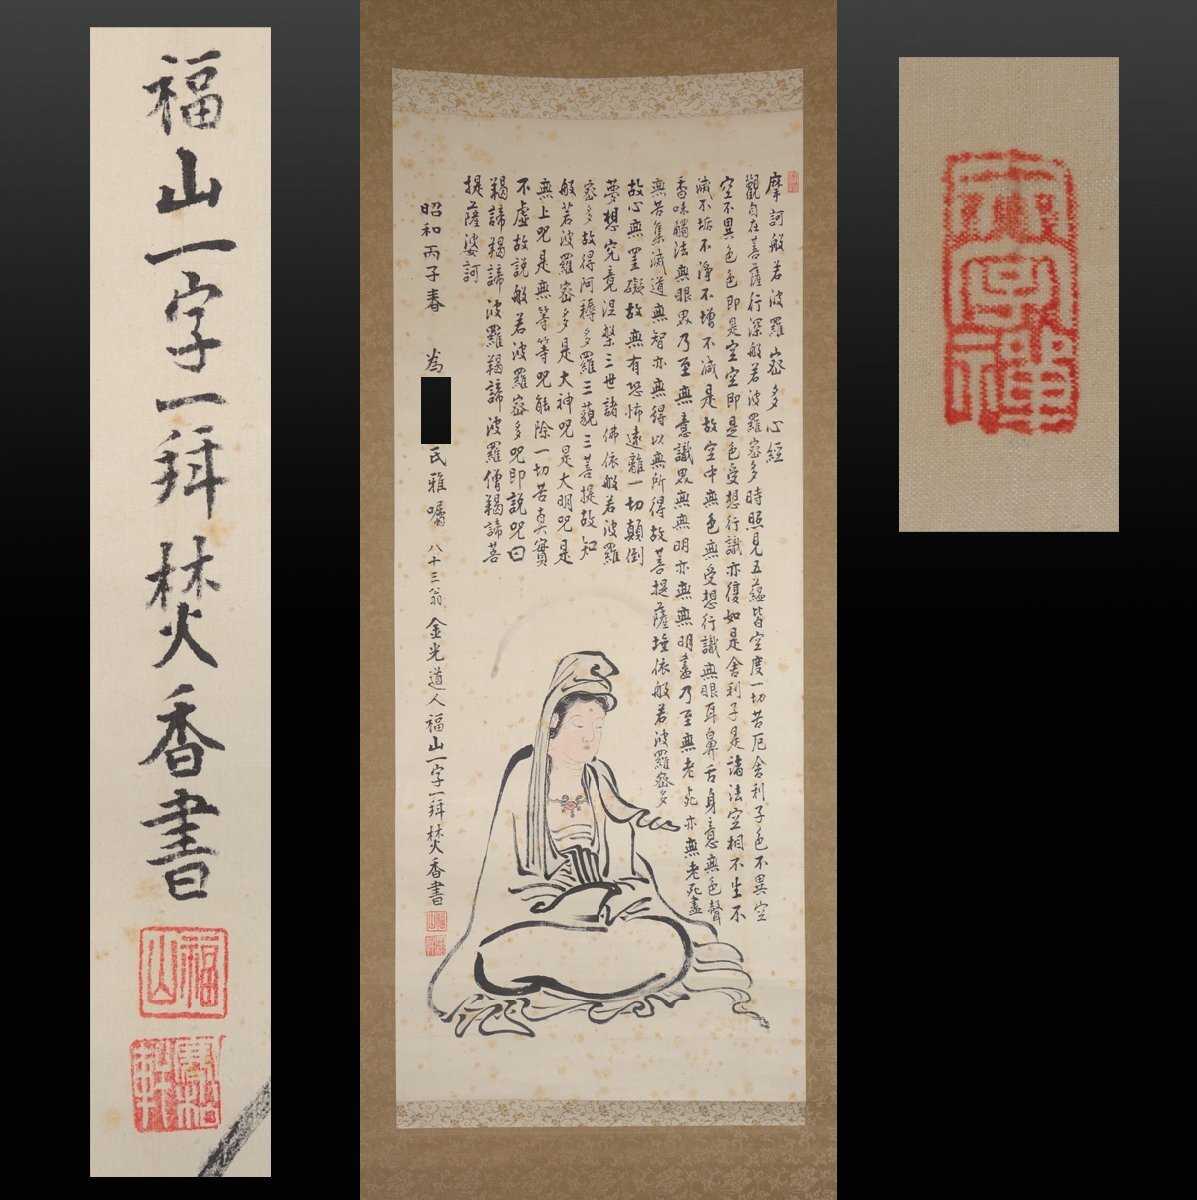 摩訶般若波羅密多心經
觀自在菩薩行深般若波羅密多時照見五蘊皆空度一切苦厄舍利子色不異空
空不異色色即是空空即是色受想行識亦復如是舍利子是諸法空相不生不
滅不垢不淨不增不減是故空中無色無受想行識無眼耳鼻舌身意無色聲
香味觸法無眼界乃至無意識界無無明亦無無明盡乃至無老死亦無老死盡
無苦集滅道無智亦無得以無所得故菩提薩埵依般若波羅密多
故心無罣礙故無有恐怖遠離一切顛倒
夢想究竟涅槃三世諸佛依般若波羅
密多故得阿耨多羅三藐三菩提故知
般若波羅密多是大神咒是大明咒是
無上咒是無等等咒能除一切苦真實
不虛故說般若波羅密多咒即說咒曰
羯諦羯諦波羅羯諦波羅僧羯諦菩
提薩婆訶
昭和丙子春 為 氏雅囑 八十三翁金光道人福山一字一拜焚香書
福山一字一拜焚香書
福山